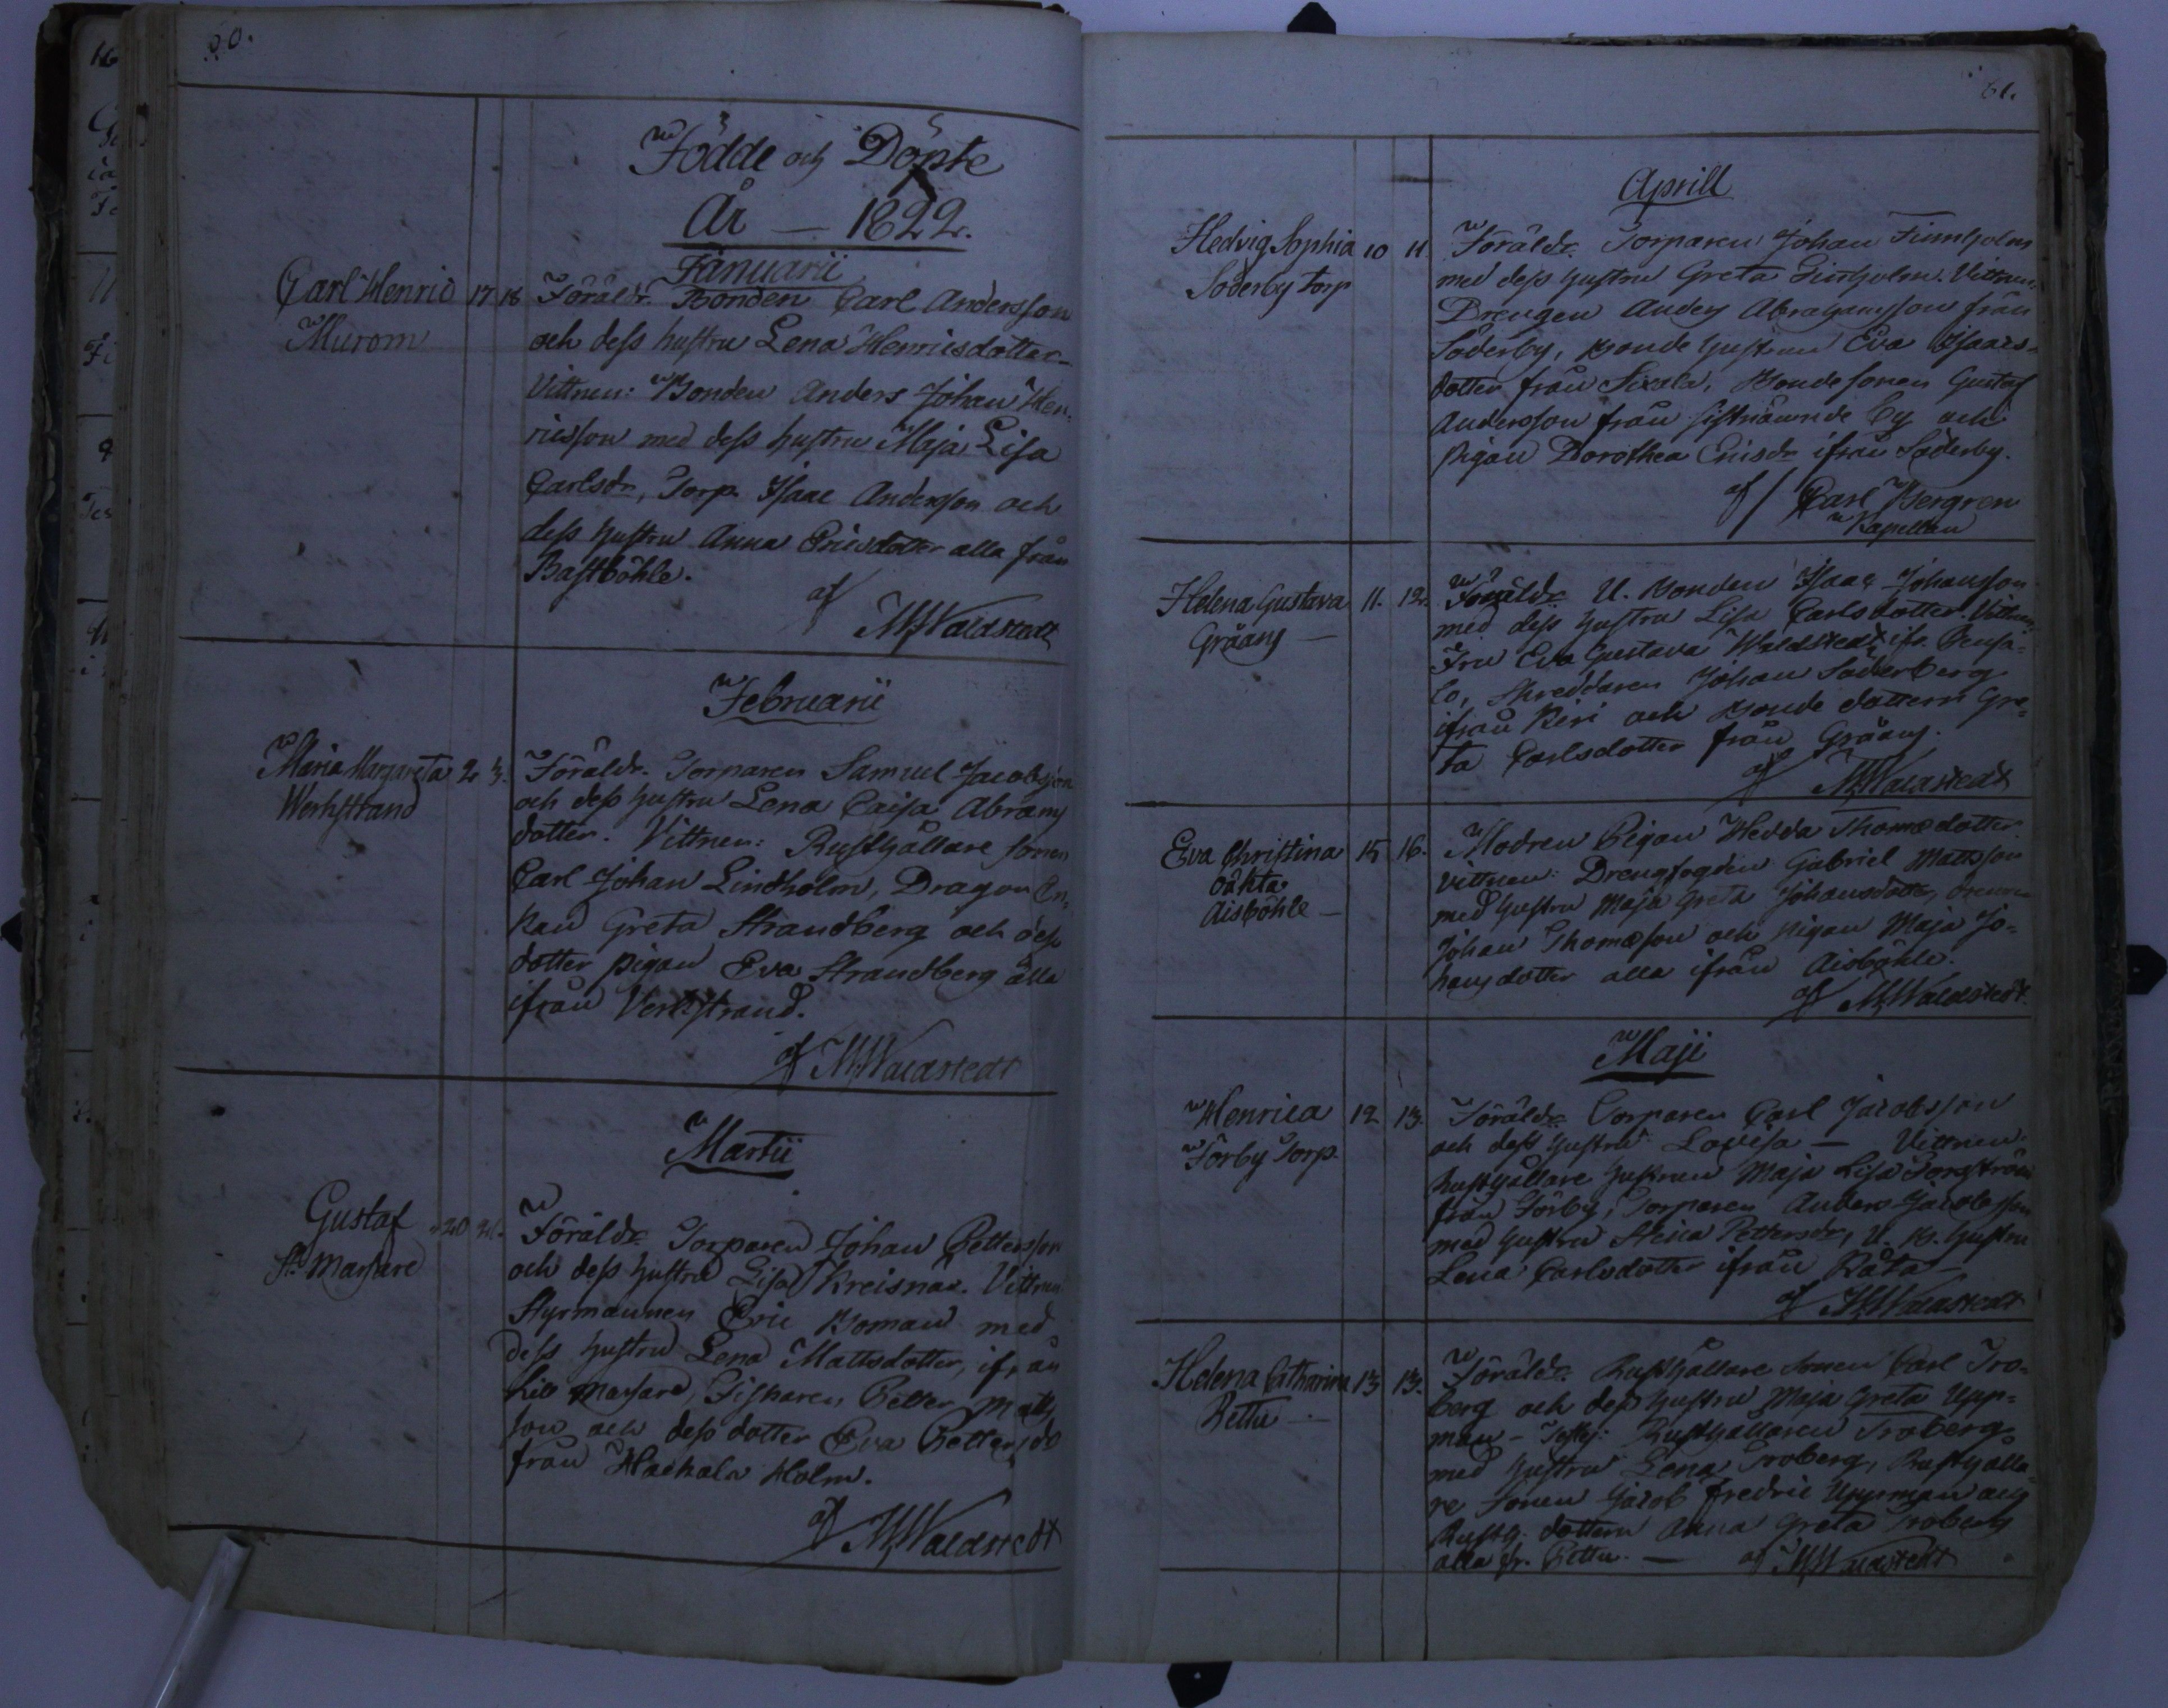 60.
Födde och Döpte
År — 1822.
Januarii
Carl Henric 17 18 Föräldr. Bonden Carl Andersson
Murom och dess hustru Lena Henricsdotter
Vittnen: Bonden Anders Johan Hen-
ricsson med dess hustru Maja Lisa
Carlsdr, Torp. Isaac Andersson och
dess hustru Anna Ericsdotter alla från
Bastböhle.
af
MWaldstedt
Februarii
Maria Margareta 2 3. Föräldr. Torparen Samuel Jacobsson
Werkstrand och dess hustru Lena Caisa Abrams
dotter. Vittnen: Rusthållare sonen
Carl Johan Lindholm, Dragon En-
kan Greta Strandberg och dess
dotter pigan Eva Strandberg alla
ifrån Verkstrand.
af MWaldstedt
Martii
Gustaf 20 21. Föräldr Torparen Johan Pettersson
St. Marsare och dess hustru Lisa Kreisnar. Vittnen
Styrmannen Eric Boman med
dess hustru Lena Mattsdotter, ifrån
Lill Marsare, Fiskaren Petter Matts
son och dess dotter Eva Pettersdr
från Hackala Holm.
af MWaldstedt
61.
Aprill
Hedvig Sophia 10 11. Föräldr Torparen Johan Finnholm
Söderby torp med dess hustru Greta Finnholm. Vittnen:
Drengen Anders Abrahamsson från
Söderby, Bonde hustrun Eva Isaacs-
dotter från Sixala, Bondesonen Gustaf
Andersson från sistnämnde by och
pigan Dorothea Ericsdr ifrån Söderby.
af Carl Bergren
Kapellan
Helena Gustava 11. 12. Föräldr U. Bonden Isaac Johansson
Gräang — med dess hustru Lisa Carlsdotter. Vittnen:
Fru Eva Gustava Waldstedt ifr. Pensa-
lo, Skreddaren Johan Söderberg
ifrån Biri och Bonde dottern Gre-
ta Carlsdotter från Gräang.
af MWaldstedt
Eva Christina 15 16. Modren Pigan Hedda Thomædotter
oäkta Vittnen: Drengfogden Gabriel Mattsson
Aisböhle — med hustru Maja Greta Johansdotter, drengen
Johan Thomæson och pigan Maja Jo-
hansdotter alla ifrån Aisböhle.
af MWaldstedt
Maji
Henrica 12 13. Föräldr Torparen Carl Jacobsson
Förby Torp. och dess hustru Lovisa — Vittnen:
Rusthållare hustrun Maja Lisa Forsström
från Förby, Torparen Anders Jacobsson
med hustru Stina Pettersdr, U. B. hustru
Lena Carlsdotter ifrån Råta —
af MWaldstedt
Helena Catharina 13 13. Föräldr Rusthållare sonen Carl Tro-
Pettu — berg och dess hustru Maja Greta Upp-
man — Test: Rusthållaren Troberg
med hustru Lena Troberg, Rusthålla-
re sonen Jacob Fredric Uppman och
Rusth. dottern Anna Greta Troberg
alla fr. Pettu. — af MWaldstedt